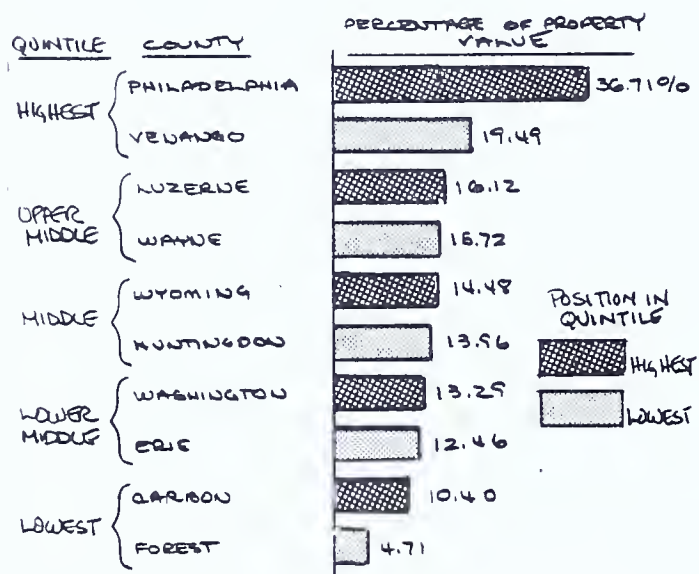 PERCENTAGE OF PROPERTY VALUE
QUINTILE COUNTY
HIGHEST
PHILADELPHIA 36.71%
VENANGO 19.49
UPPER MIDDLE
LUZERNE 16.12
WAYNE 15.72
MIDDLE
WYOMING 14.48
HUNTINGDON 13.96
LOWER MIDDLE
WASHINGTON 13.29
ERIE 12.46
LOWEST
CARBON 10.40
FOREST 4.71
POSITION IN QUINTILE
HIGHEST
LOWEST